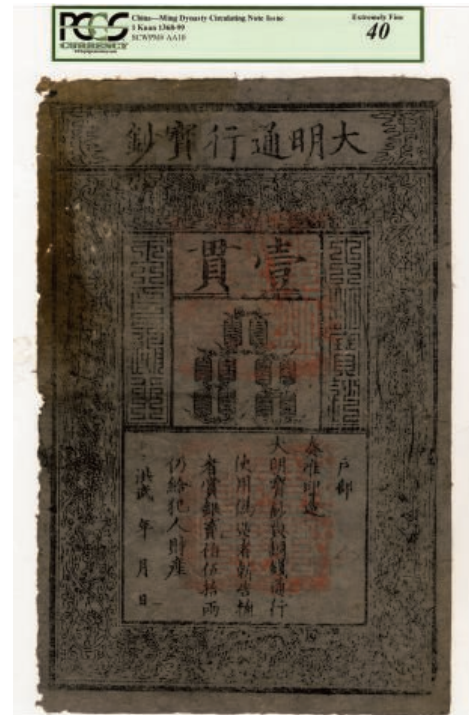 PCGS
CURRENCY
China—Ming Dynasty Circulating Note Issue
1 Kuan 1368-99
SCWPM# AA10
Extremely Fine
40
大明通行寶鈔
壹貫
戶部
奏准印造
大明寶鈔與銅錢通行
使用偽造者斬告捕
者賞銀貳佰伍拾兩
仍給犯人財產
洪武 年 月 日